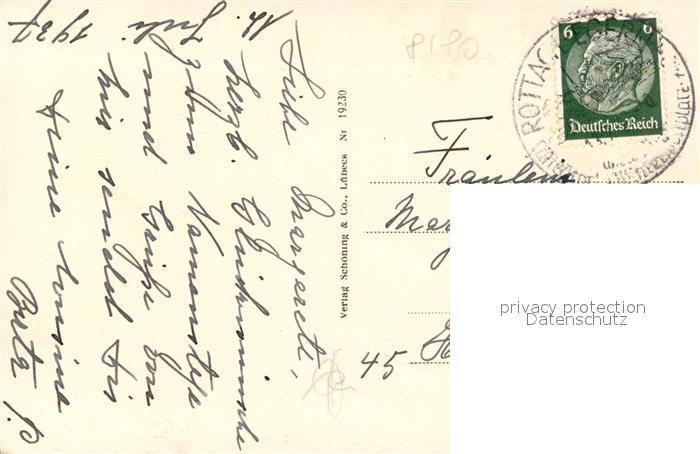 12. Juli
1937
Liebe Margarett,
herzl. Glückwünsche
zum Namensfeste
und Grüße von
hier sendet Dir
Deine Cousine
Berta P.
Verlag Schöning & Co., Lübeck Nr 19230
8180
6 6
Deutsches Reich
ROTTACH-EGERN
Fräulein
45
privacy protection
Datenschutz